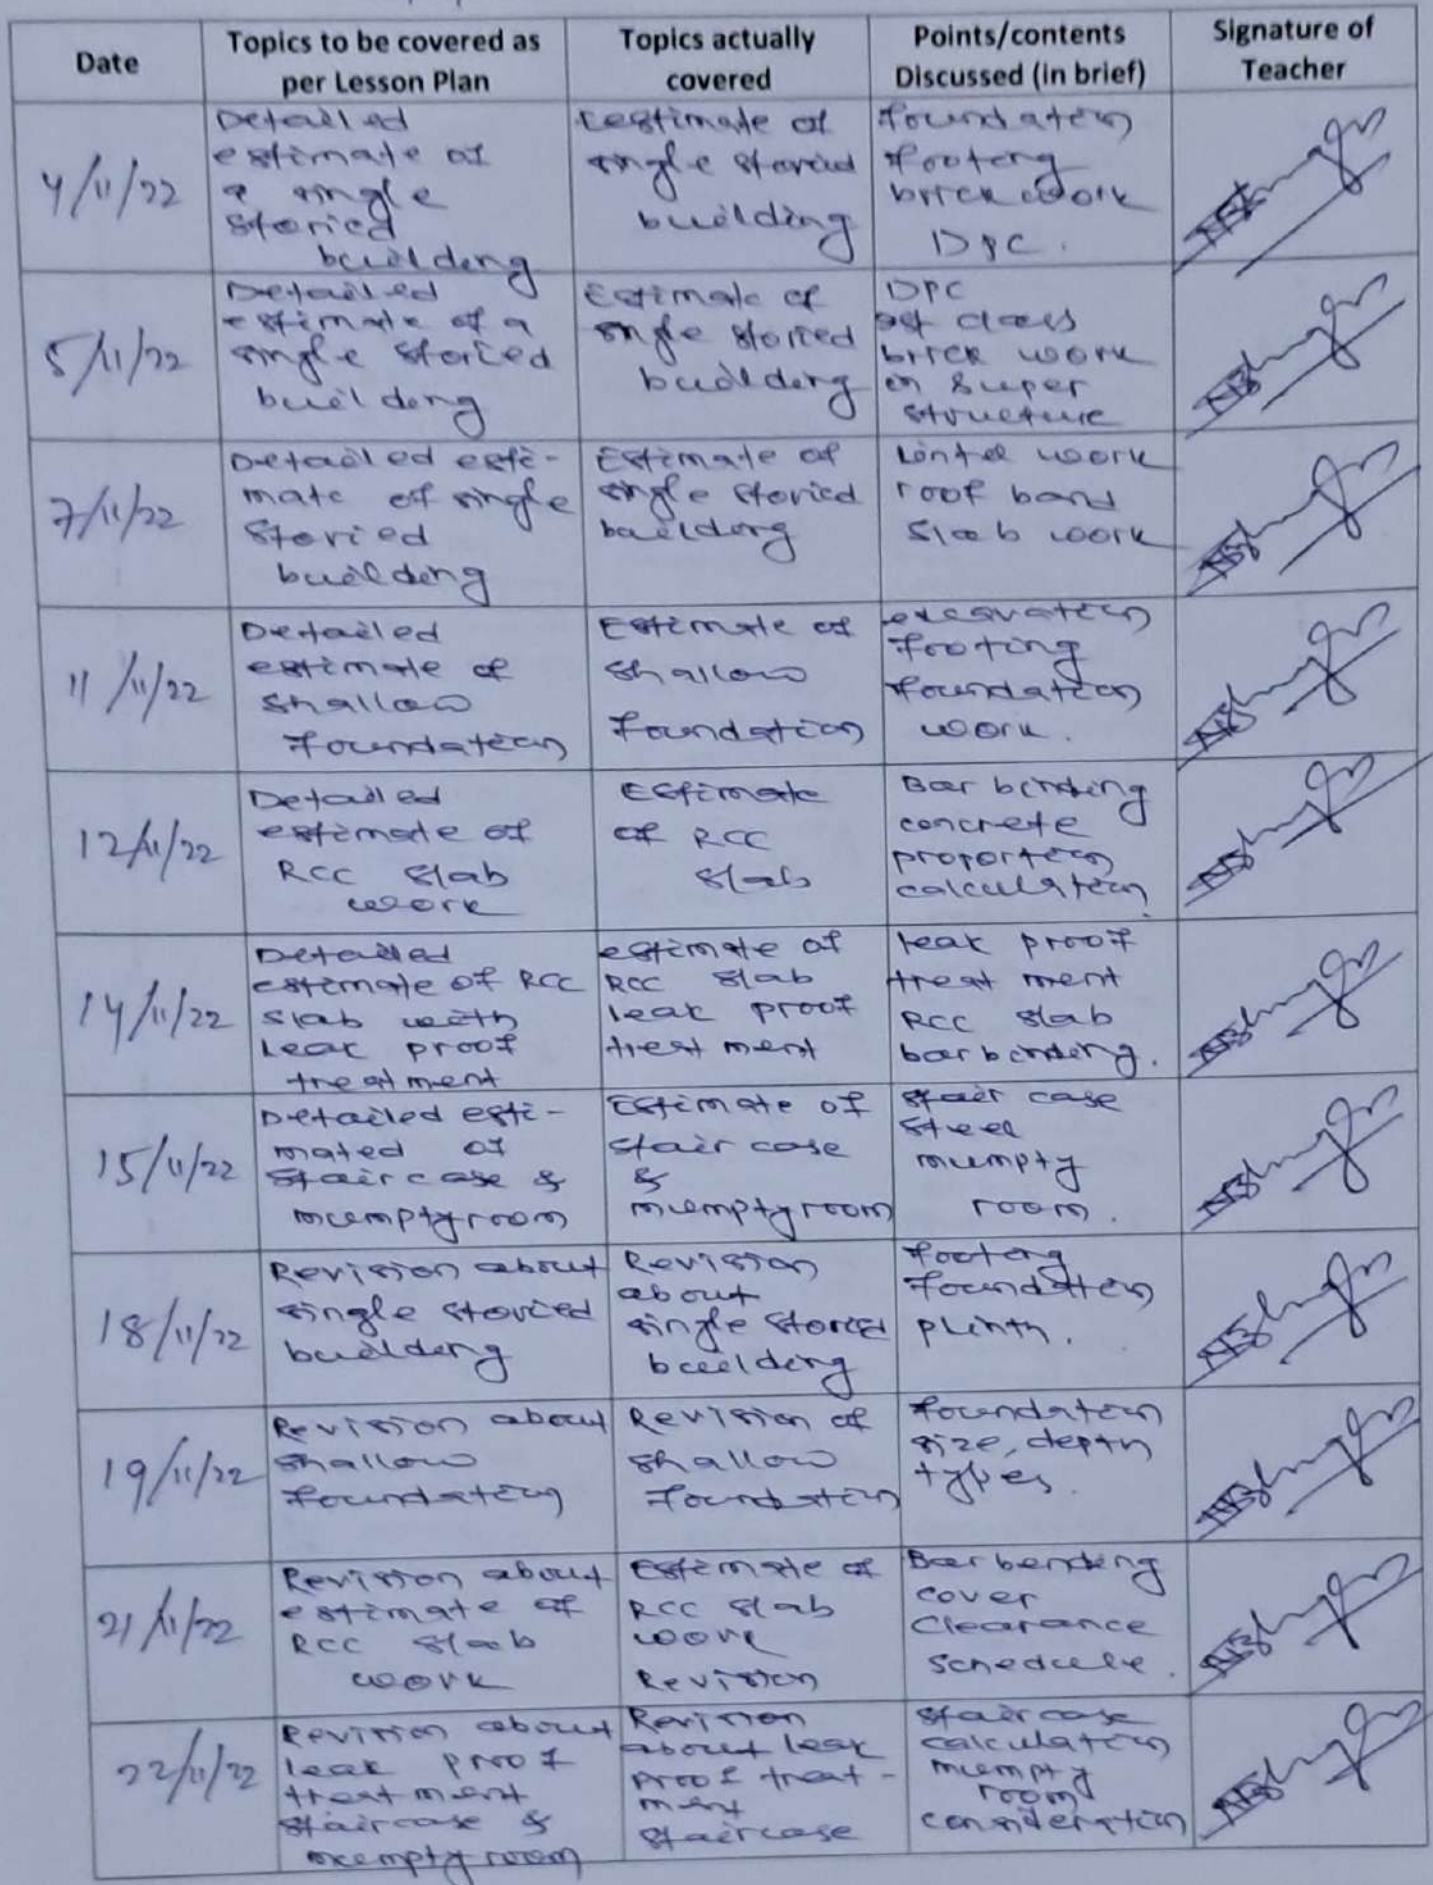 Date
Topics to be covered as
per Lesson Plan
Topics actually
covered
Points/contents
Discussed (in brief)
Signature of
Teacher
4/11/22
Detailed
estimate of
a single
storied
building
Eestimate of
single storied
building
foundation
footing
brick work
DPC.
5/11/22
Detailed
estimate of a
single storied
building
Estimate of
single storied
building
DPC
1st class
brick work
in super
structure
7/11/22
Detailed esti-
mate of single
storied
building
Estimate of
single storied
building
Lintel work
roof band
slab work
11/11/22
Detailed
estimate of
shallow
foundation
Estimate of
shallow
foundation
excavation
footing
foundation
work.
12/11/22
Detailed
estimate of
RCC slab
work
Estimate
of RCC
slab
Bar binding
concrete
proportion
calculation
14/11/22
Detailed
estimate of RCC
slab with
leak proof
treatment
estimate of
RCC slab
leak proof
treatment
leak proof
treatment
RCC slab
bar binding.
15/11/22
Detailed esti-
mated of
staircase &
mumptyroom
Estimate of
stair case
&
mumptyroom
stair case
steel
mumpty
room.
18/11/22
Revision about
single storied
building
Revision
about
single storied
building
footing
foundation
plinth.
19/11/22
Revision about
shallow
foundation
Revision of
shallow
foundation
foundation
size, depth
types.
21/11/22
Revision about
estimate of
RCC slab
work
Estimate of
RCC slab
work
Revision
Bar bending
cover
clearance
schedule.
22/11/22
Revision about
leak proof
treatment
staircase &
mumpty room
Revision
about leak
proof treat-
ment
staircase
staircase
calculation
mumpty
room
consideration